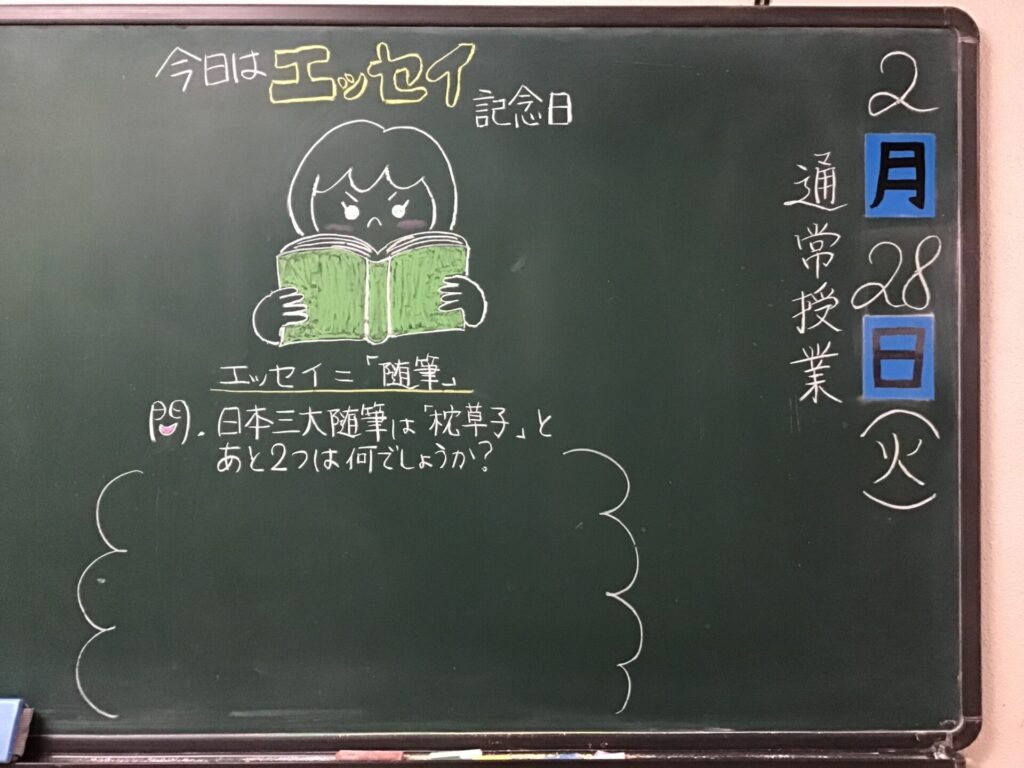 今日はエッセイ記念日
エッセイ=「随筆」
.日本三大随筆は「枕草子」と
あと2つは何でしょうか?
2月28日(火)
通常授業